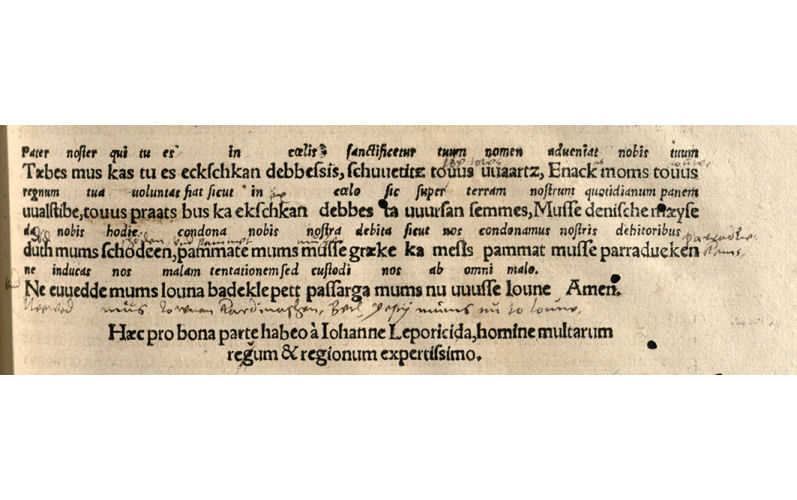 Pater noster qui tu es in cœlis? sanctificetur tuum nomen adueniat nobis tuum
Tæbes mus kas tu es eckschkan debbessis, schuuetitz touus uuaartz, Enack moms touus
regnum tua voluntas fiat sicut in cœlo sic super terram nostrum quotidianum panem
uualstibe, touus praats bus ka ekschkan debbes ta uuursan semmes, Musse denische mayse
da nobis hodie. condona nobis nostra debita sicut nos condonamus nostris debitoribus
duth mums schodeen, pammate mums musse græke ka mess pammat musse parradueken
ne inducas nos malam tentationem sed custodi nos ab omni malo.
Ne euuedde mums louna badekle pett passarga mums nu uuusse loune Amen.
Hæc pro bona parte habeo à Iohanne Leporicida, homine multarum
regum & regionum expertissimo.